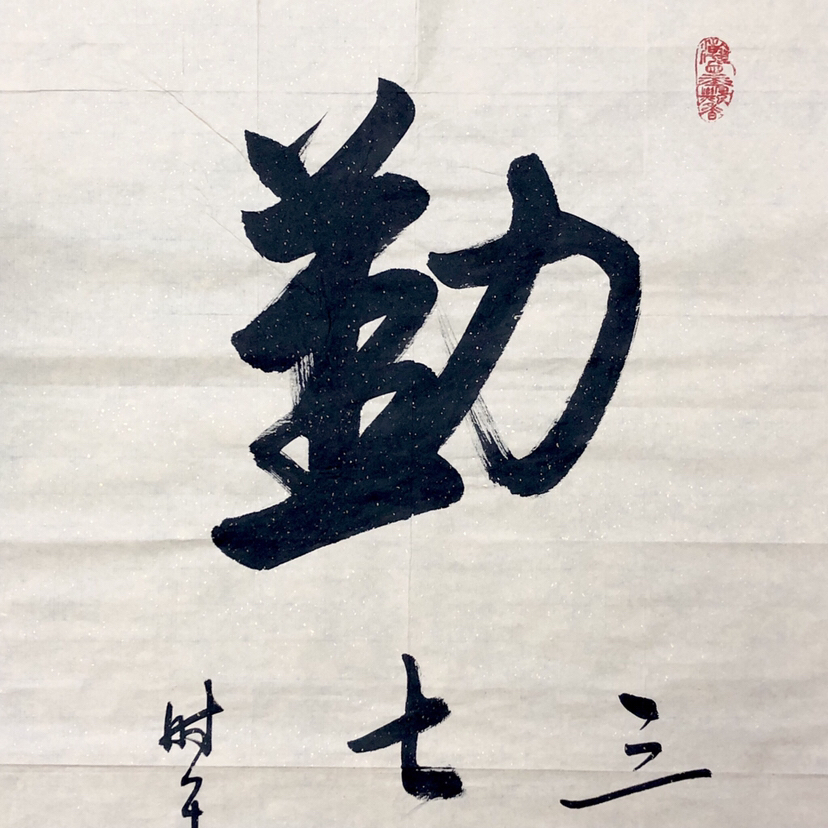 勤
三
七
时年